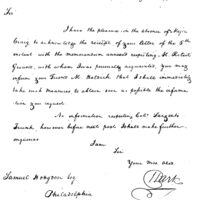 Sir
I have the pleasure in the absence of Major
Craig to acknowledge the receipt of your letter of the 5th
instant with the memorandum annexed respecting Mr. Robert
Graves, with whom I was personally acquainted, you may
inform your friend M. that I shall immediately
take such measures to obtain such as possible the informa
tion you request.
No information respecting Sergeant
French however better most post I shall make further
enquiries
I am
Sir
Your Mo. Obt.
Samuel Hodgson Esq
Philadelphia